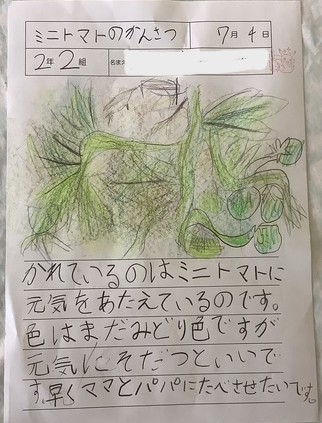 ミニトマトのかんさつ 7月4日
2年2組 名まえ
かれているのはミニトマトに
元気をあたえているのです。
色はまだみどり色ですが
元気にそだつといいで
す。早くママとパパにたべさせたいです。